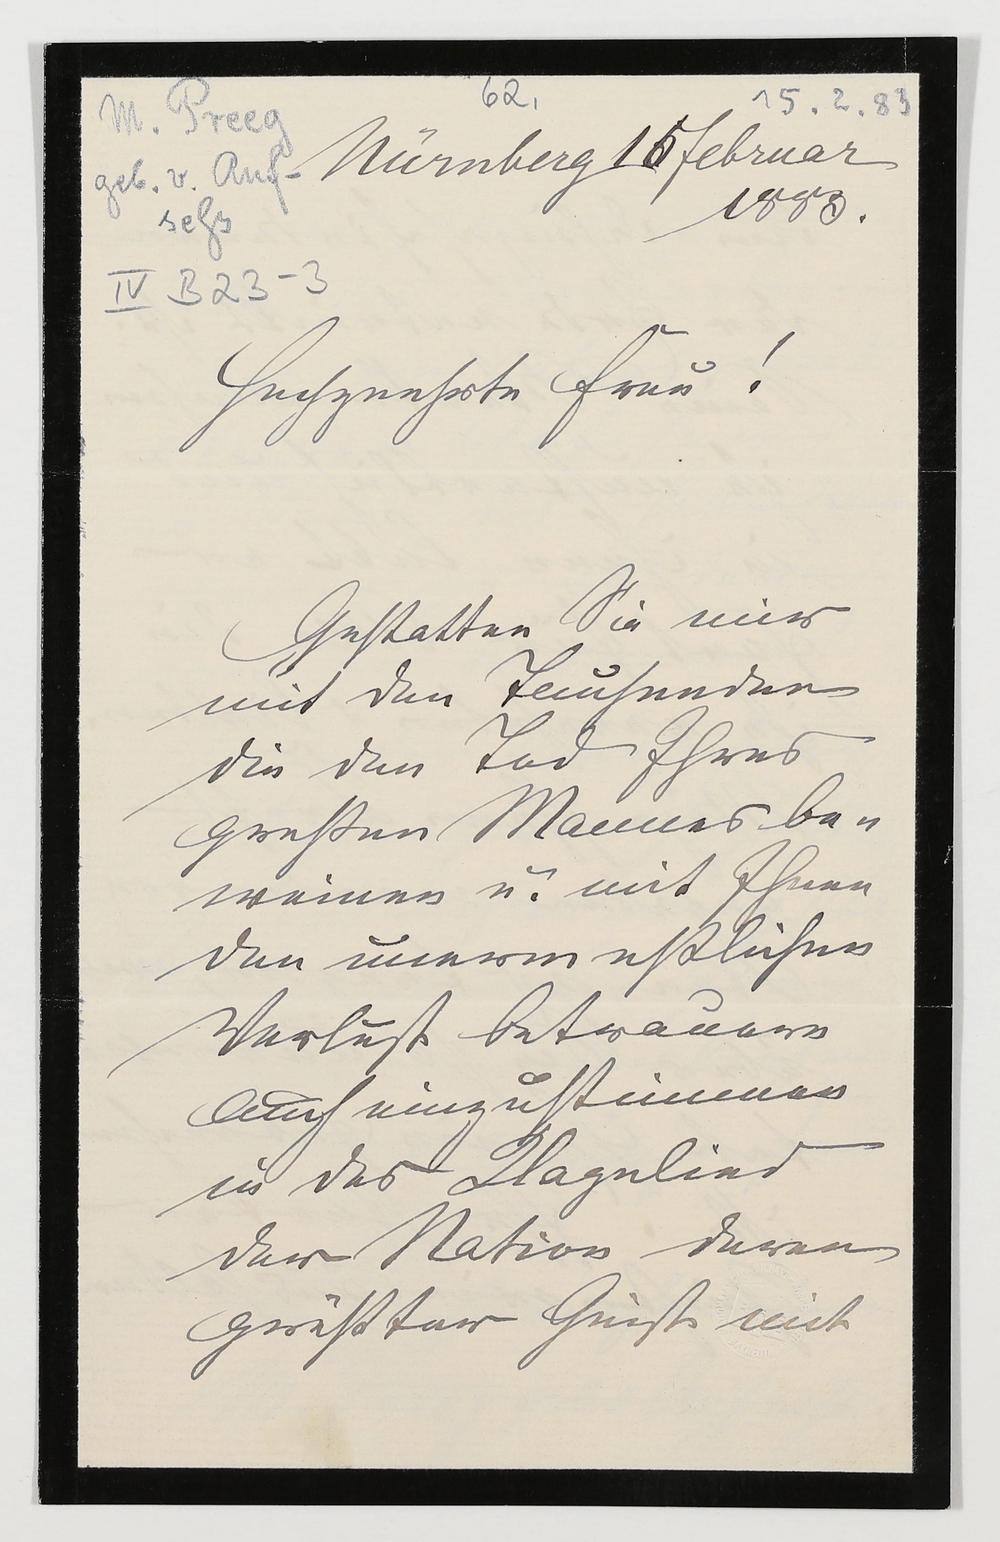 M. Preeg
geb. v. Auf-
seß
IV B 23-3
62.
15.2.83
Nürnberg 15 Februar
1883.
Hochgeehrte Frau!
Gestatten Sie mir
mit den Tausenden
die den Tod Ihres
großen Mannes be-
weinen u. mit Ihnen
den unermeßlichen
Verlust betrauern
auch einzustimmen
in das Klagelied
der Nation deren
größter Geist mit